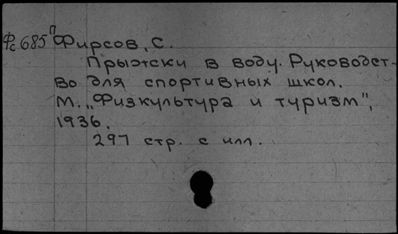 Фс 685 П Фирсов, С.
Прыжски в воду. Руководст-
во для спортивных школ.
М. „Физкультура и туризм",
1936.
297 стр. с илл.